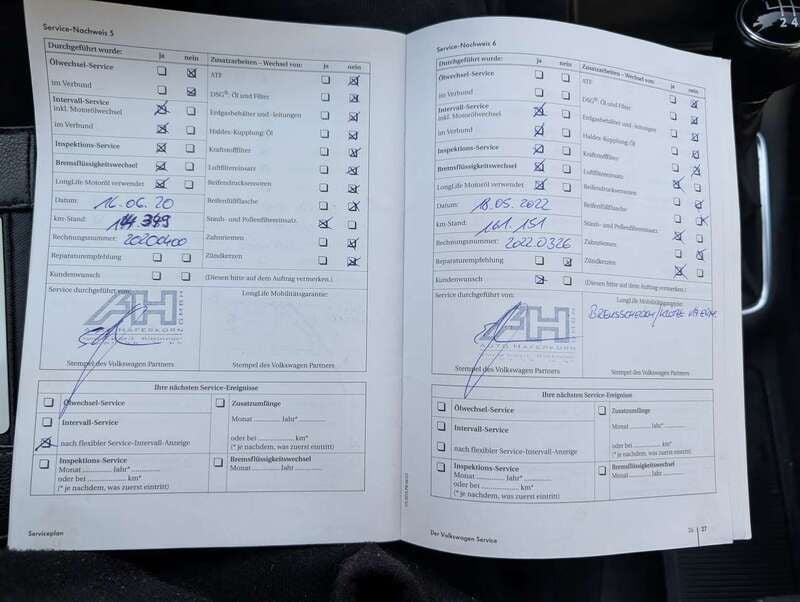 Service-Nachweis 5
Durchgeführt wurde: ja nein
Zusatzarbeiten – Wechsel von: ja nein
Ölwechsel-Service
ATF
im Verbund
DSG®: Öl und Filter
Intervall-Service
inkl. Motorölwechsel
Erdgasbehälter und -leitungen
im Verbund
Haldex-Kupplung: Öl
Inspektions-Service
Kraftstofffilter
Bremsflüssigkeitswechsel
Luftfiltereinsatz
LongLife Motoröl verwendet
Reifendrucksensoren
Datum: 16.06.20
Reifenfüllflasche
km-Stand: 144.349
Staub- und Pollenfiltereinsatz
Rechnungsnummer: 20200400
Zahnriemen
Reparaturempfehlung
Zündkerzen
Kundenwunsch
(Diesen bitte auf dem Auftrag vermerken.)
Service durchgeführt von:
LongLife Mobilitätsgarantie:
AH
HAFERKORN
GMBH
Stempel des Volkswagen Partners
Stempel des Volkswagen Partners
Ihre nächsten Service-Ereignisse
Ölwechsel-Service
Zusatzumfänge
Intervall-Service
Monat .......... Jahr*
nach flexibler Service-Intervall-Anzeige
oder bei .......... km*
(* je nachdem, was zuerst eintritt)
Inspektions-Service
Monat .......... Jahr*
oder bei .......... km*
(* je nachdem, was zuerst eintritt)
Bremsflüssigkeitswechsel
Monat .......... Jahr ..........
Serviceplan
Service-Nachweis 6
Durchgeführt wurde: ja nein
Zusatzarbeiten – Wechsel von: ja nein
Ölwechsel-Service
ATF
im Verbund
DSG®: Öl und Filter
Intervall-Service
inkl. Motorölwechsel
Erdgasbehälter und -leitungen
im Verbund
Haldex-Kupplung: Öl
Inspektions-Service
Kraftstofffilter
Bremsflüssigkeitswechsel
Luftfiltereinsatz
LongLife Motoröl verwendet
Reifendrucksensoren
Datum: 18.05.2022
Reifenfüllflasche
km-Stand: 161.151
Staub- und Pollenfiltereinsatz
Rechnungsnummer: 2022.0326
Zahnriemen
Reparaturempfehlung
Zündkerzen
Kundenwunsch
(Diesen bitte auf dem Auftrag vermerken.)
Service durchgeführt von:
LongLife Mobilitätsgarantie:
AH
AUTO HAFERKORN
GMBH
Stempel des Volkswagen Partners
Stempel des Volkswagen Partners
Ihre nächsten Service-Ereignisse
Ölwechsel-Service
Zusatzumfänge
Intervall-Service
Monat .......... Jahr*
nach flexibler Service-Intervall-Anzeige
oder bei .......... km*
(* je nachdem, was zuerst eintritt)
Inspektions-Service
Monat .......... Jahr*
oder bei .......... km*
(* je nachdem, was zuerst eintritt)
Bremsflüssigkeitswechsel
Monat .......... Jahr ..........
Der Volkswagen Service
26 | 27
2 4